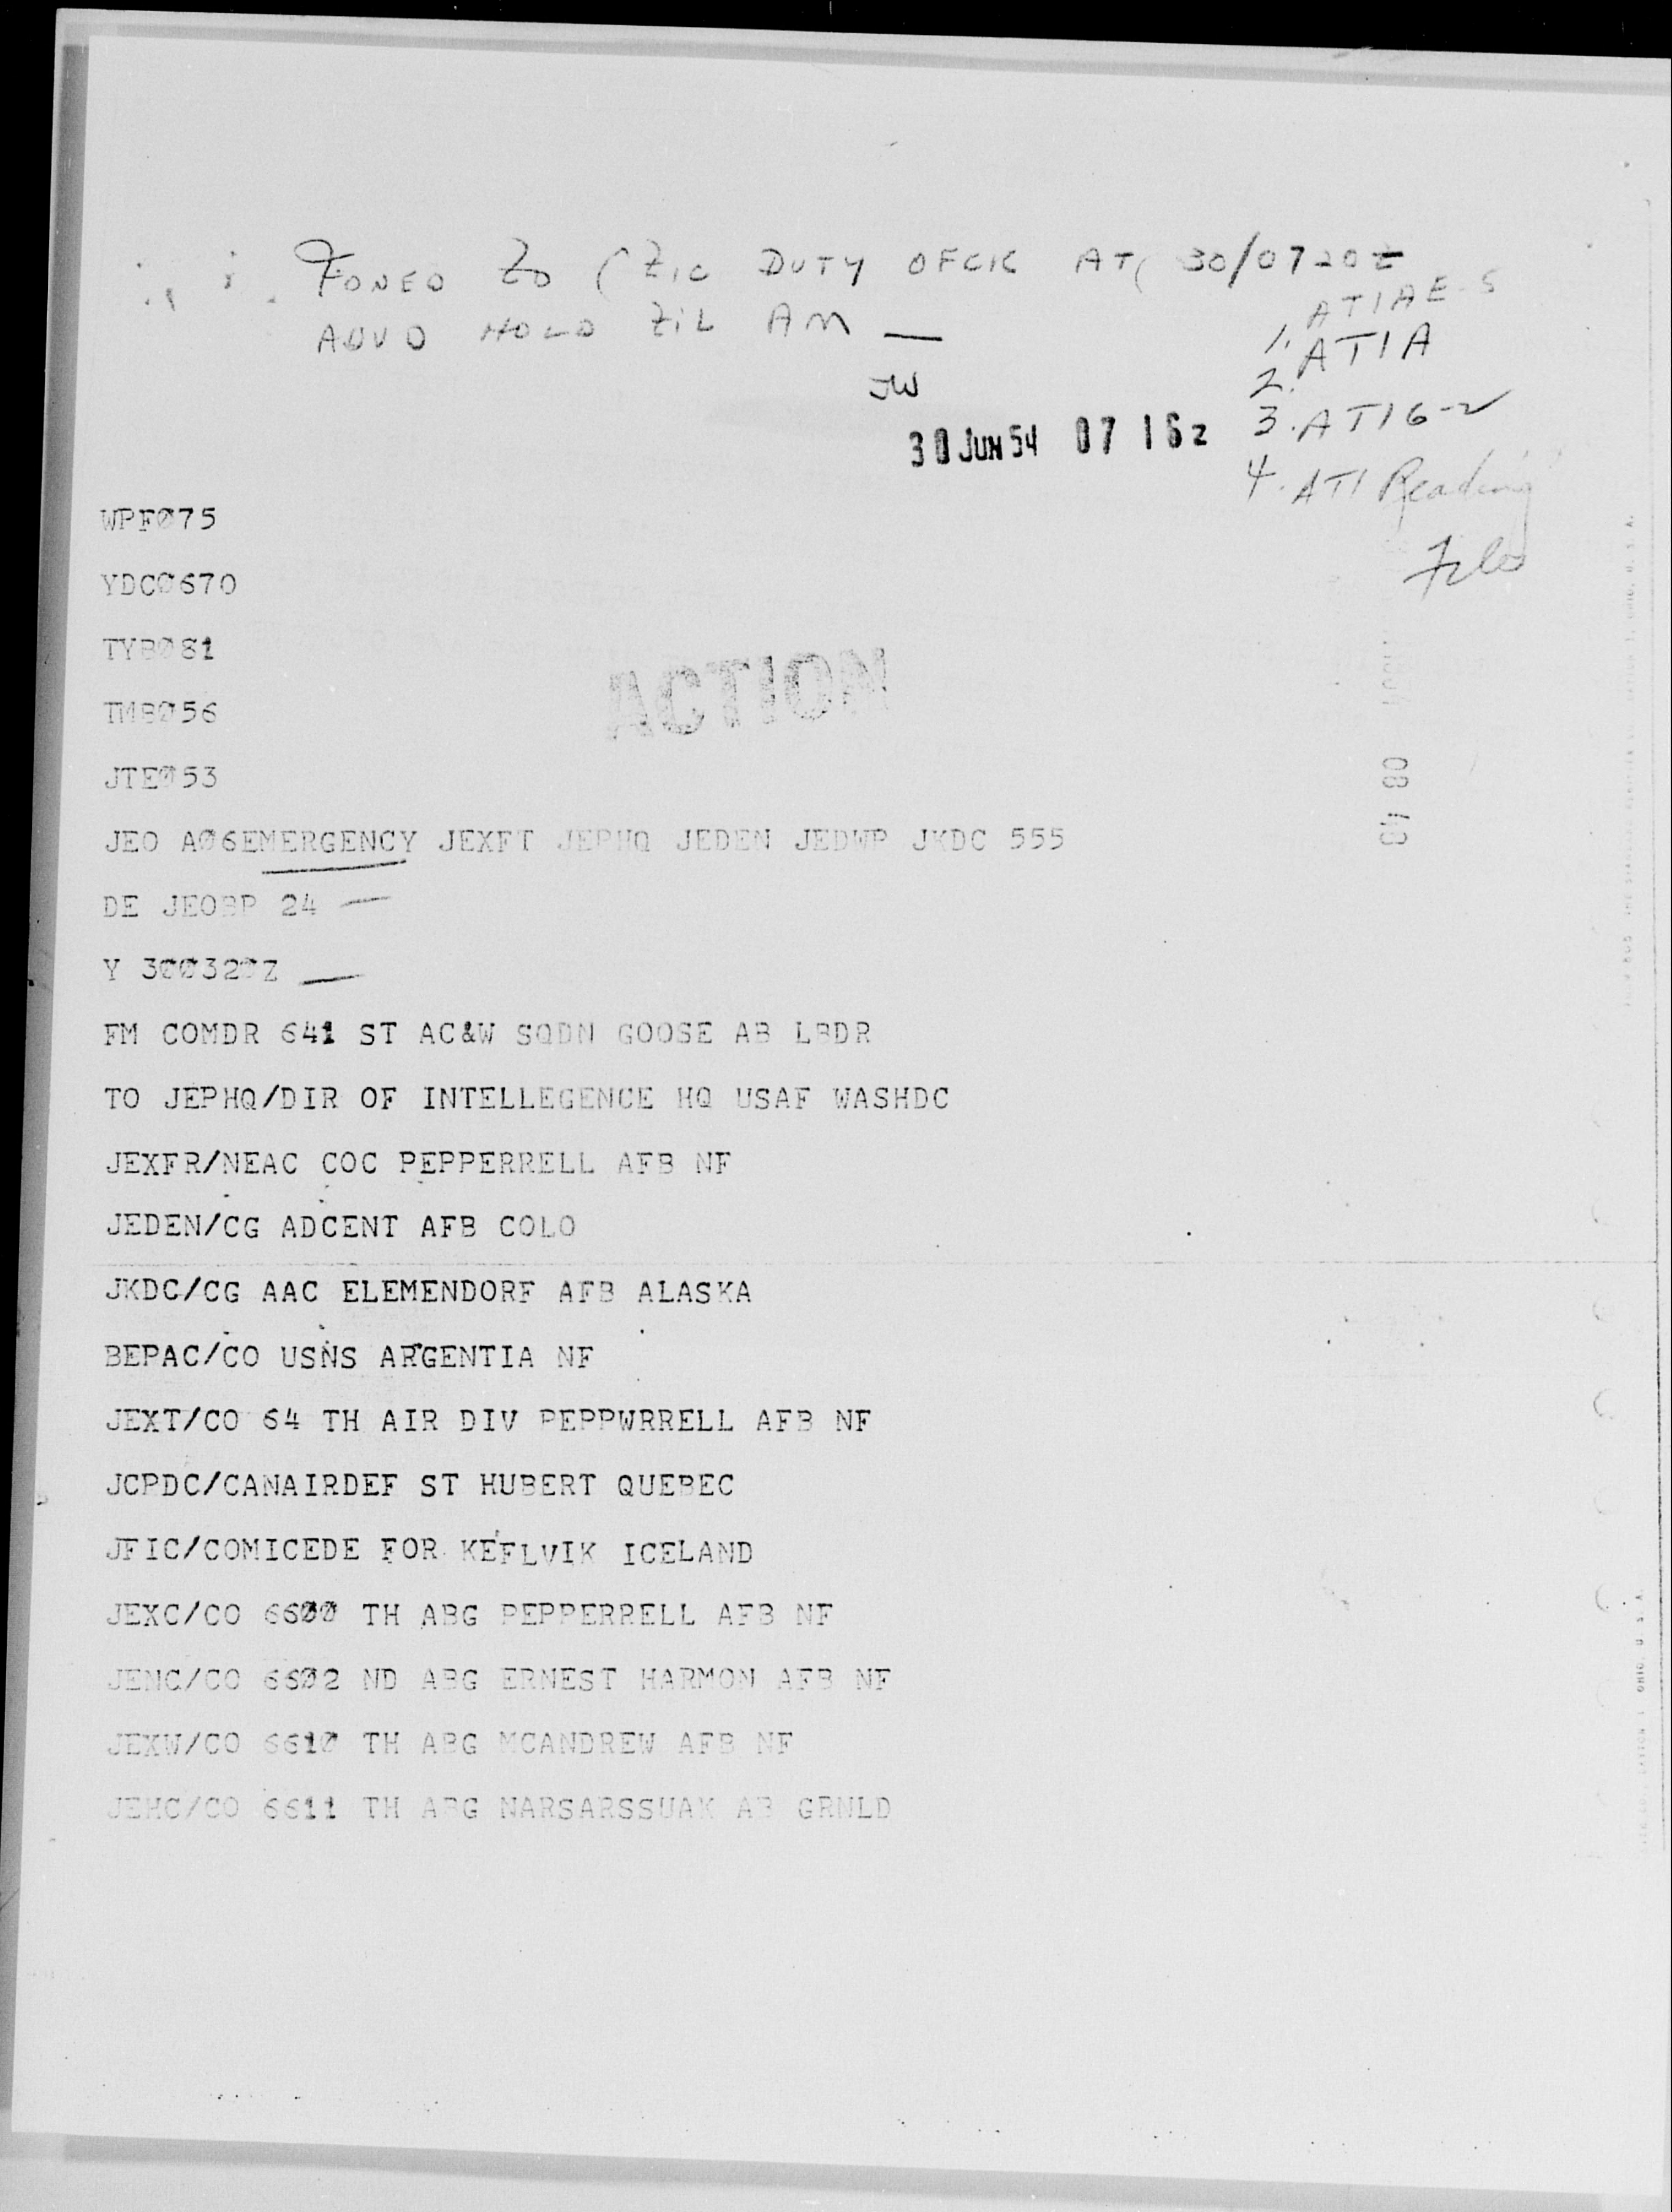 FONED TO DUTY OFCR AT 30/0720Z
ADVD HOLD TIL AM —
ATIAE-5
1. ATIA
2.
JW
3. ATI6-2
30 JUN 54 07 16z
4. ATI Reading
Files
WPFØ75
YDCØ670
TYBØ81
TMBØ56
ACTION
JTEØ53
JEO AØ6EMERGENCY JEXFT JEPHQ JEDEN JEDWP JKDC 555
DE JEOBP 24 —
Y 3ØØ32ØZ —
FM COMDR 641 ST AC&W SQDN GOOSE AB LBDR
TO JEPHQ/DIR OF INTELLEGENCE HQ USAF WASHDC
JEXFR/NEAC COC PEPPERRELL AFB NF
JEDEN/CG ADCENT AFB COLO
JKDC/CG AAC ELEMENDORF AFB ALASKA
BEPAC/CO USNS ARGENTIA NF
JEXT/CO 64 TH AIR DIV PEPPWRRELL AFB NF
JCPDC/CANAIRDEF ST HUBERT QUEBEC
JFIC/COMICEDE FOR KEFLVIK ICELAND
JEXC/CO 66ØØ TH ABG PEPPERRELL AFB NF
JENC/CO 66Ø2 ND ABG ERNEST HARMON AFB NF
JEXW/CO 661Ø TH ABG MCANDREW AFB NF
JEHC/CO 6611 TH ABG NARSARSSUAK AB GRNLD